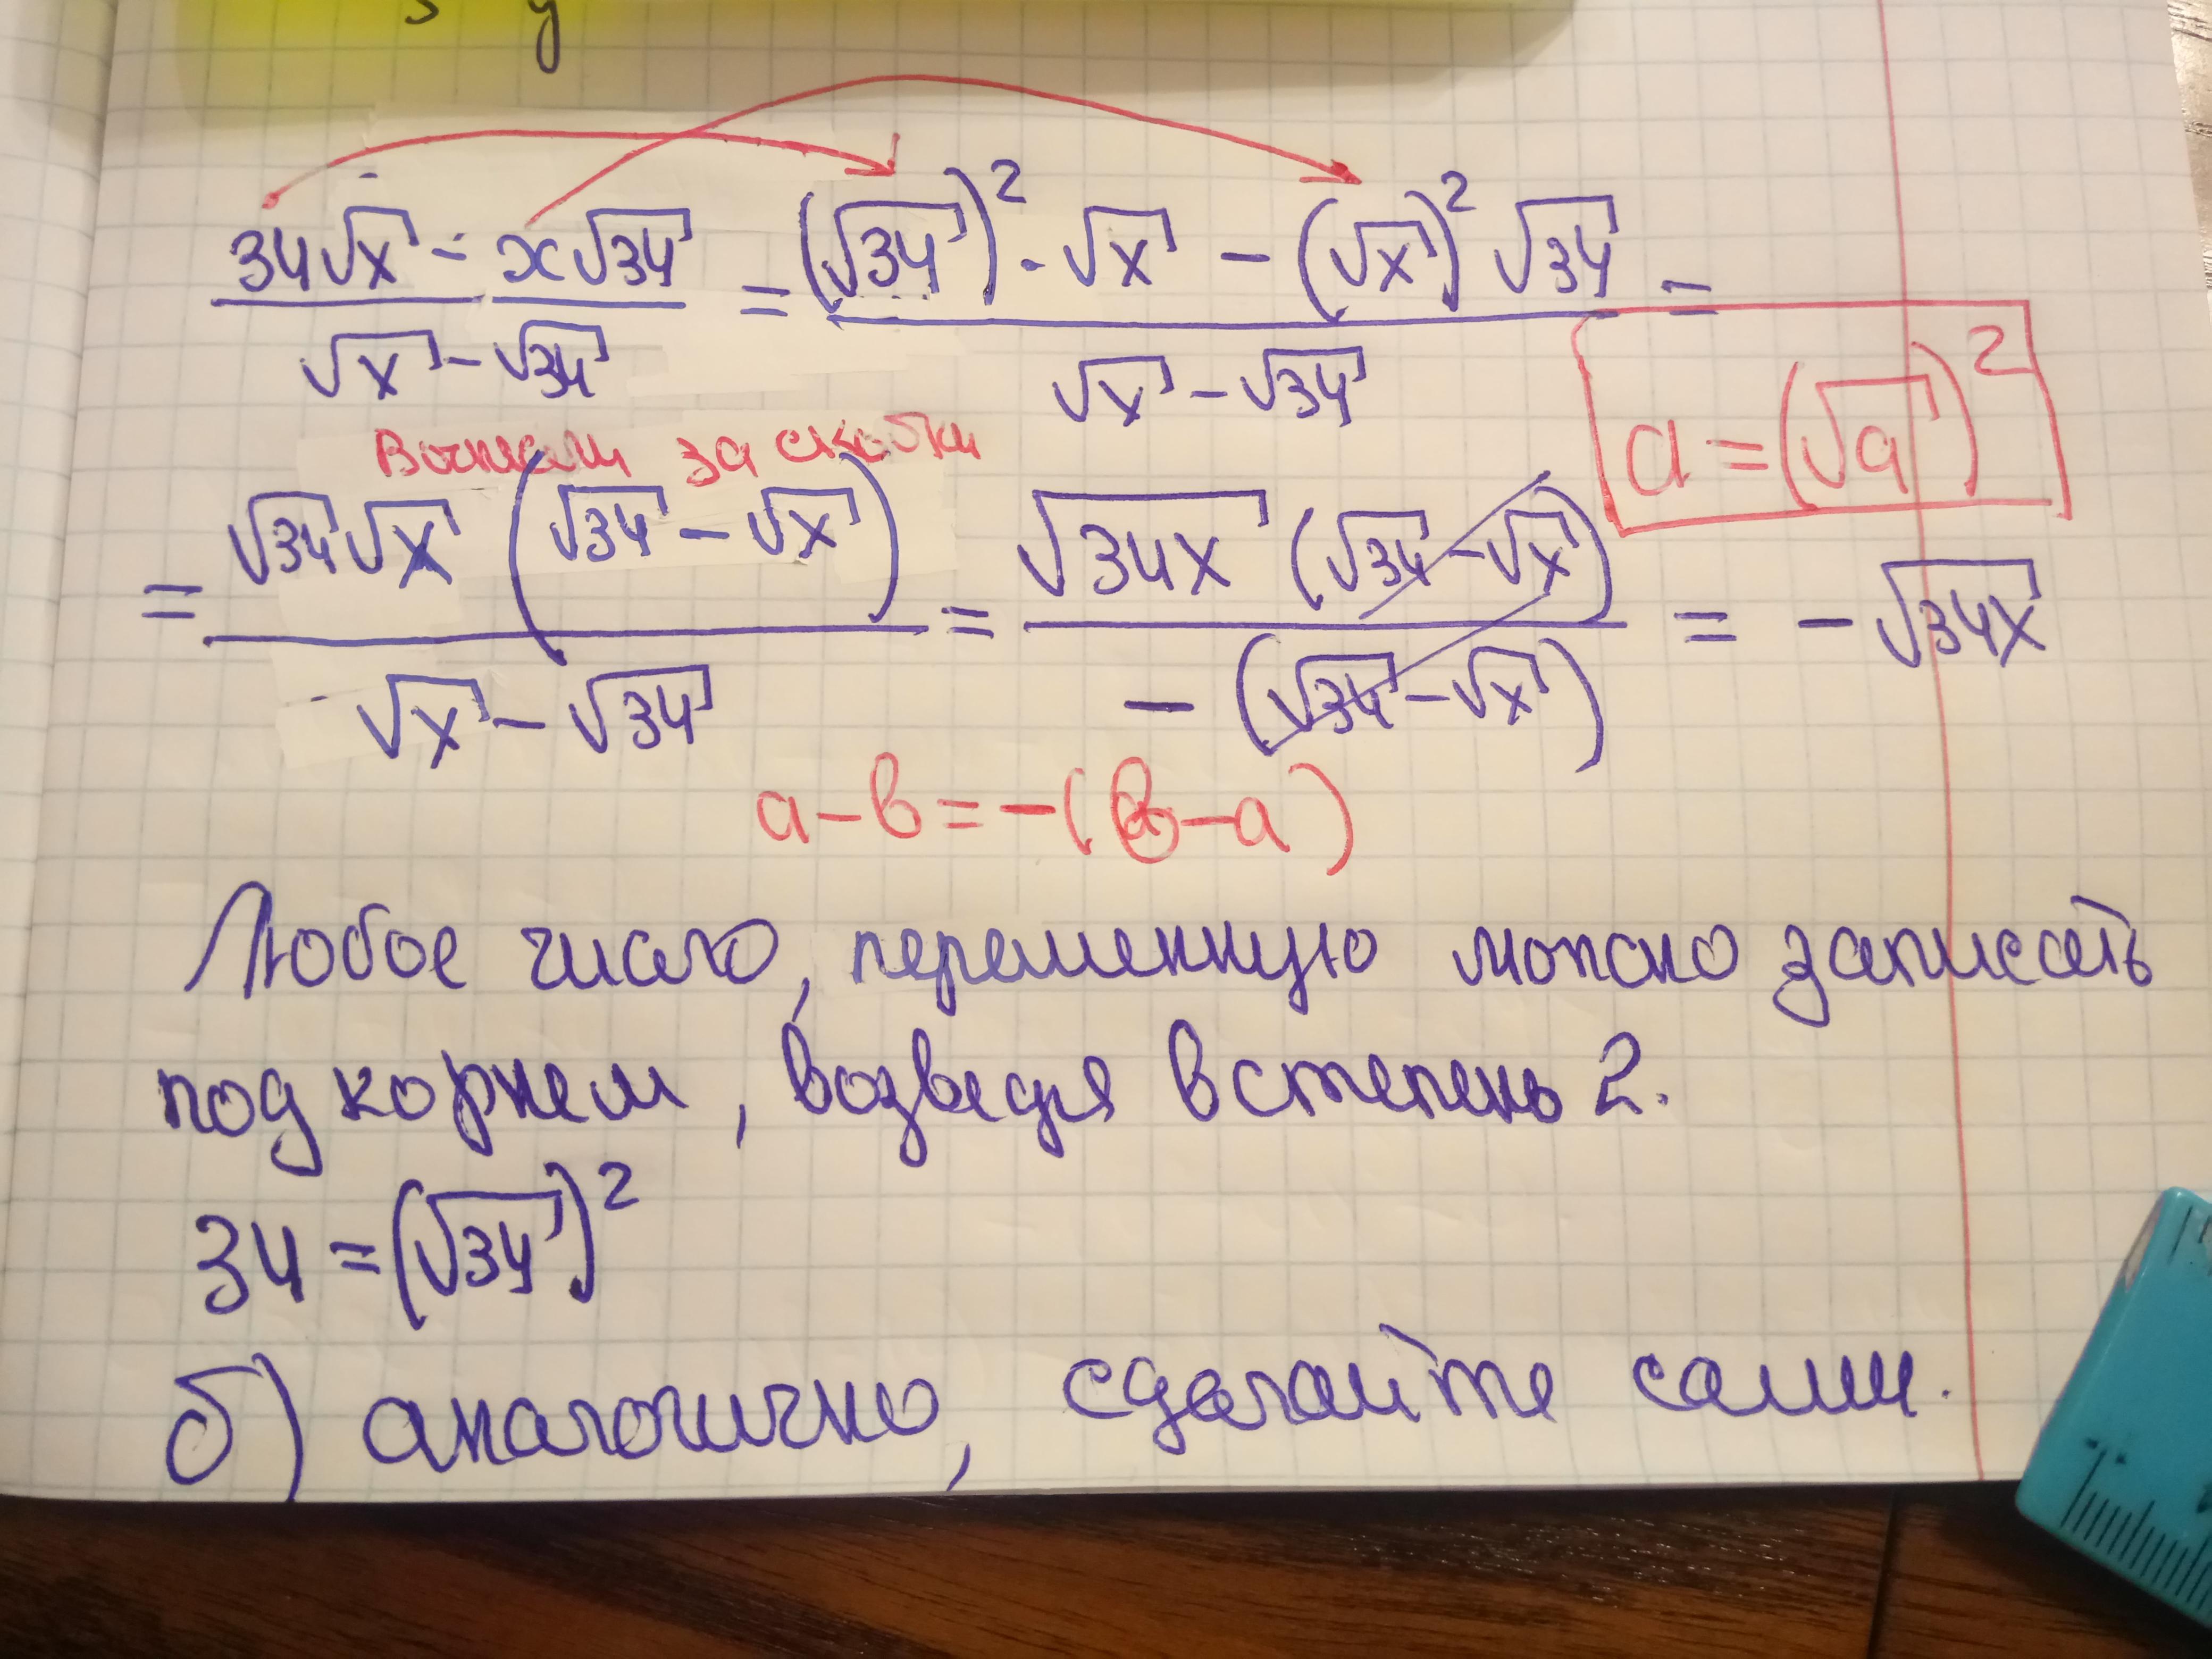 у
(34√x - x√34)/(√x - √34) = ((√34)² · √x - (√x)² √34)/(√x - √34) =
a = (√a)²
Вынесем за скобки
= (√34√x (√34 - √x))/(√x - √34) = (√34x (√34 - √x))/(-(√34 - √x)) = -√34x
a - в = -(в - a)
Любое число, переменную можно записать
под корнем, возведя в степень 2.
34 = (√34)²
б) аналогично, сделайте сами.